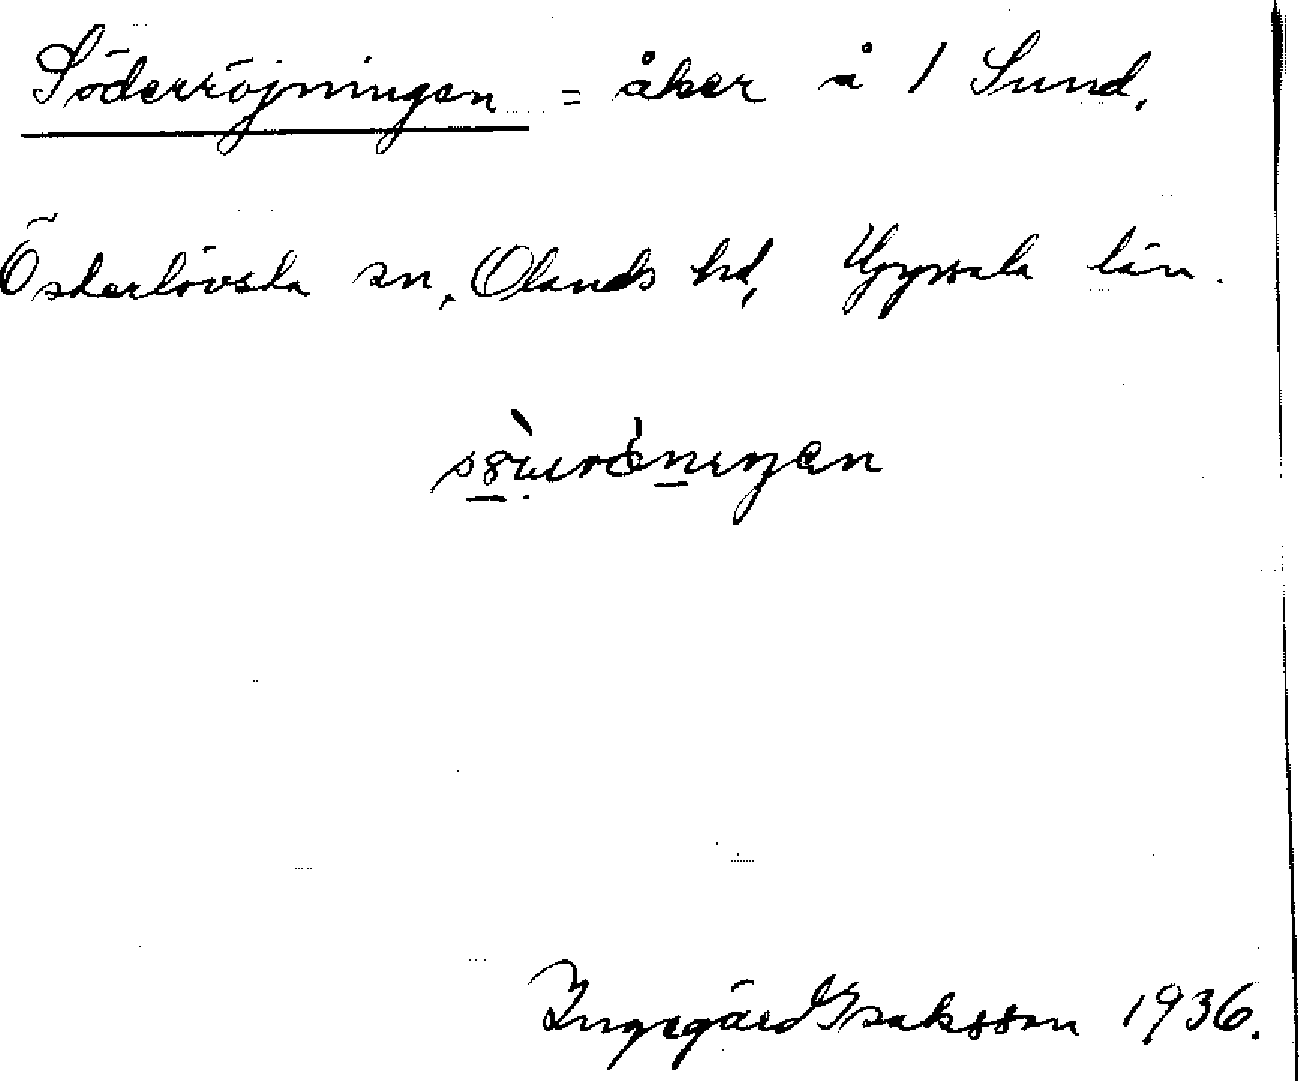 Söderröjningen = åker å 1 Sund.
Österlövsta sn, Olands hd, Uppsala län.
Ingegärd Isaksson 1936.